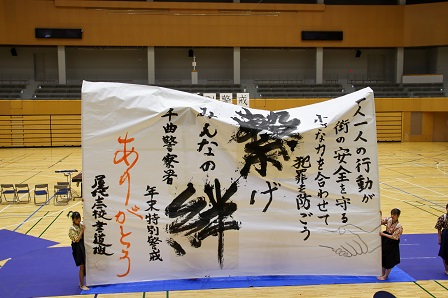 一人一人の行動が
街の安全を守る
小さな力を合わせて
犯罪を防ごう
繋げ
みんなの絆
千曲警察署
年末特別警戒
ありがとう
屋代高校書道班